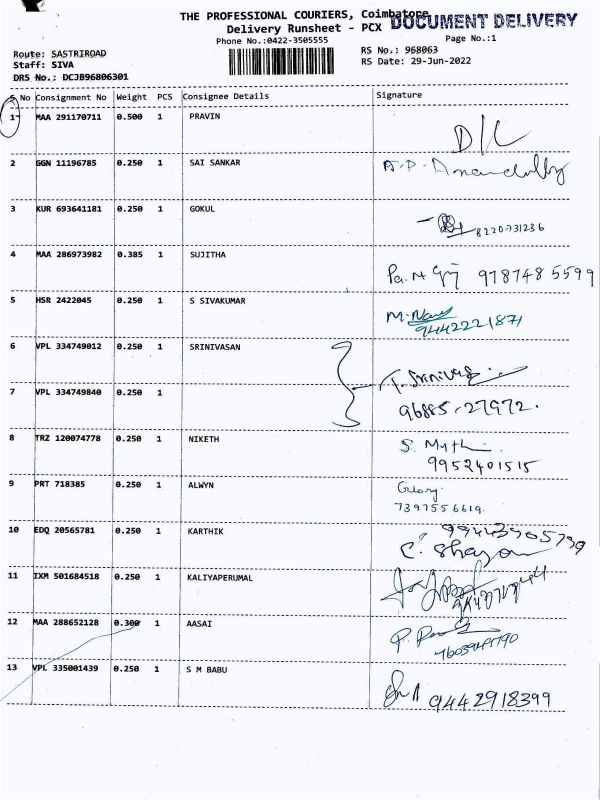 THE PROFESSIONAL COURIERS, Coimbatore
DOCUMENT DELIVERY
Delivery Runsheet - PCX
Phone No.:0422-3505555
Page No.:1
Route: SASTRIROAD
RS No.: 968063
Staff: SIVA
RS Date: 29-Jun-2022
DRS No.: DCJB96806301
S No Consignment No Weight PCS Consignee Details Signature
1 MAA 291170711 0.500 1 PRAVIN D/C
2 GGN 11196785 0.250 1 SAI SANKAR
3 KUR 693641181 0.250 1 GOKUL 8220731236
4 MAA 286973982 0.385 1 SUJITHA 9787485599
5 HSR 2422045 0.250 1 S SIVAKUMAR
9442221871
6 VPL 334749012 0.250 1 SRINIVASAN T. Srinivas
7 VPL 334749840 0.250 1 96885-27972.
8 TRZ 120074778 0.250 1 NIKETH
9952401515
9 PRT 718385 0.250 1 ALWYN
7397556619
10 EDQ 20565781 0.250 1 KARTHIK
11 IXM 501684518 0.250 1 KALIYAPERUMAL
12 MAA 288652128 0.300 1 AASAI
13 VPL 335001439 0.250 1 S M BABU 9442918399